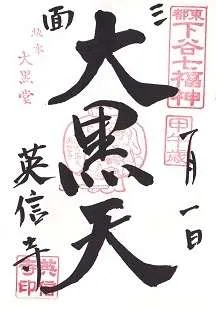 東都
下谷七福神
甲午歳
一月一日
三面
大黒天
大黒堂
英信寺
英信寺印